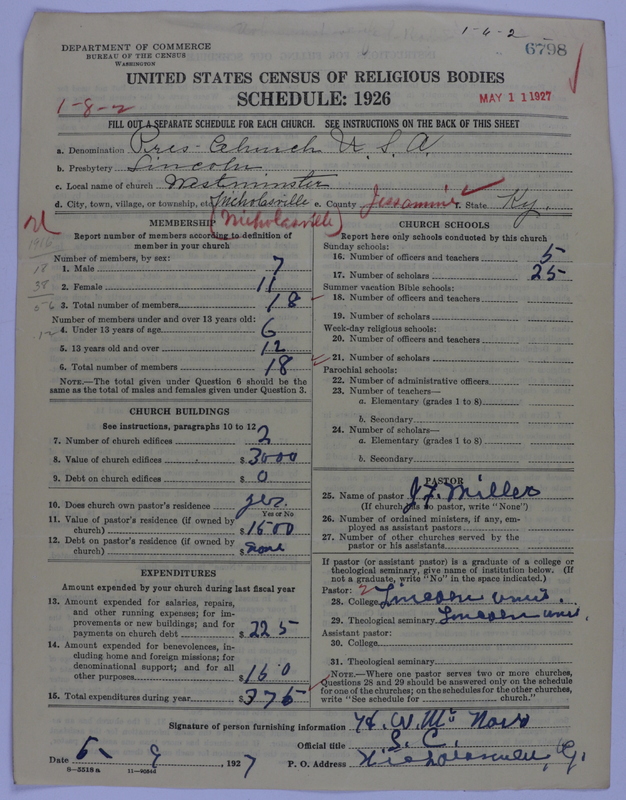 1-4-2
DEPARTMENT OF COMMERCE
BUREAU OF THE CENSUS
WASHINGTON
6798
UNITED STATES CENSUS OF RELIGIOUS BODIES
SCHEDULE: 1926
1-8-2
MAY 11 1927
FILL OUT A SEPARATE SCHEDULE FOR EACH CHURCH. SEE INSTRUCTIONS ON THE BACK OF THIS SHEET
a. Denomination Pres. Church U. S. A.
b. Presbytery Lincoln
c. Local name of church Westminster
d. City, town, village, or township, etc. Nicholasville e. County Jessamine State Ky.
(Nicholasville)
MEMBERSHIP
Report number of members according to definition of
member in your church
1916
18
38
56
-12
Number of members, by sex:
1. Male 7
2. Female 11
3. Total number of members 18
Number of members under and over 13 years old:
4. Under 13 years of age 6
5. 13 years old and over 12
6. Total number of members 18
NOTE.—The total given under Question 6 should be the
same as the total of males and females given under Question 3.
CHURCH BUILDINGS
See instructions, paragraphs 10 to 12
7. Number of church edifices 2
8. Value of church edifices $3000
9. Debt on church edifices $0
10. Does church own pastor's residence yes.
Yes or No
11. Value of pastor's residence (if owned by
church) $1500
12. Debt on pastor's residence (if owned by
church) $none
EXPENDITURES
Amount expended by your church during last fiscal year
13. Amount expended for salaries, repairs,
and other running expenses; for im-
provements or new buildings; and for
payments on church debt $225
14. Amount expended for benevolences, in-
cluding home and foreign missions; for
denominational support; and for all
other purposes $150
15. Total expenditures during year $375
CHURCH SCHOOLS
Report here only schools conducted by this church
Sunday schools:
16. Number of officers and teachers 5
17. Number of scholars 25
Summer vacation Bible schools:
18. Number of officers and teachers
19. Number of scholars
Week-day religious schools:
20. Number of officers and teachers
21. Number of scholars
Parochial schools:
22. Number of administrative officers
23. Number of teachers—
a. Elementary (grades 1 to 8)
b. Secondary
24. Number of scholars—
a. Elementary (grades 1 to 8)
b. Secondary
PASTOR
25. Name of pastor J. F. Miller
(If church has no pastor, write "None")
26. Number of ordained ministers, if any, em-
ployed as assistant pastors
27. Number of other churches served by the
pastor or his assistants
If pastor (or assistant pastor) is a graduate of a college or
theological seminary, give name of institution below. (If
not a graduate, write "No" in the space indicated.)
Pastor: 2
28. College Lincoln Univ.
29. Theological seminary Lincoln Univ.
Assistant pastor:
30. College
31. Theological seminary
NOTE.—Where one pastor serves two or more churches,
Questions 28 and 29 should be answered only on the schedule
for one of the churches; on the schedules for the other churches,
write "See schedule for church."
Signature of person furnishing information
Official title S. C.
Date 5-9 1927 P. O. Address Nicholasville, Ky.
9-5518 a